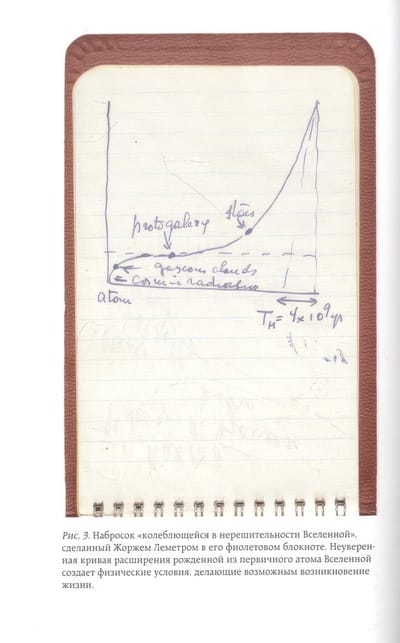 stars
protogalaxy
gaseous clouds
cosmic radiation
atom
T_H = 4x10^9 yr
Рис. 3. Набросок «колеблющейся в нерешительности Вселенной»,
сделанный Жоржем Леметром в его фиолетовом блокноте. Неуверен-
ная кривая расширения рожденной из первичного атома Вселенной
создает физические условия, делающие возможным возникновение
жизни.